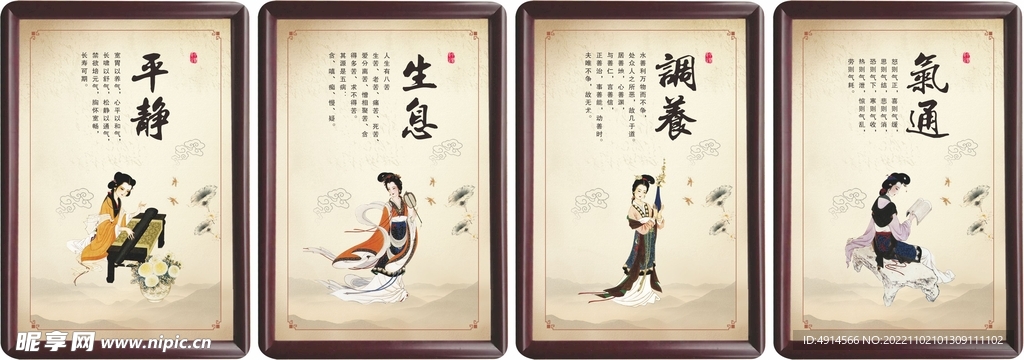 平静
宽胃以养气，心平以和气，
长啸以舒气，松静以通气，
禁欲培元气，胸怀宽畅，
长寿可期。
生息
人生有八苦
生苦、老苦、病苦、死苦、
爱分离苦、憎相聚苦、贪
得多苦、求不得苦。
其源是五病：
贪、嗔、痴、慢、疑。
調養
水善利万物而不争，
处众人之所恶，故几于道。
居善地，心善渊，
与善仁，言善信，
正善治，事善能，动善时。
夫唯不争，故无尤。
氣通
怒则气正，喜则气缓，
思则气结，悲则气消，
恐则气下，寒则气收，
热则气泄，惊则气乱，
劳则气耗。
昵享网 www.nipic.cn
ID:4914566 NO:20221102101309111102